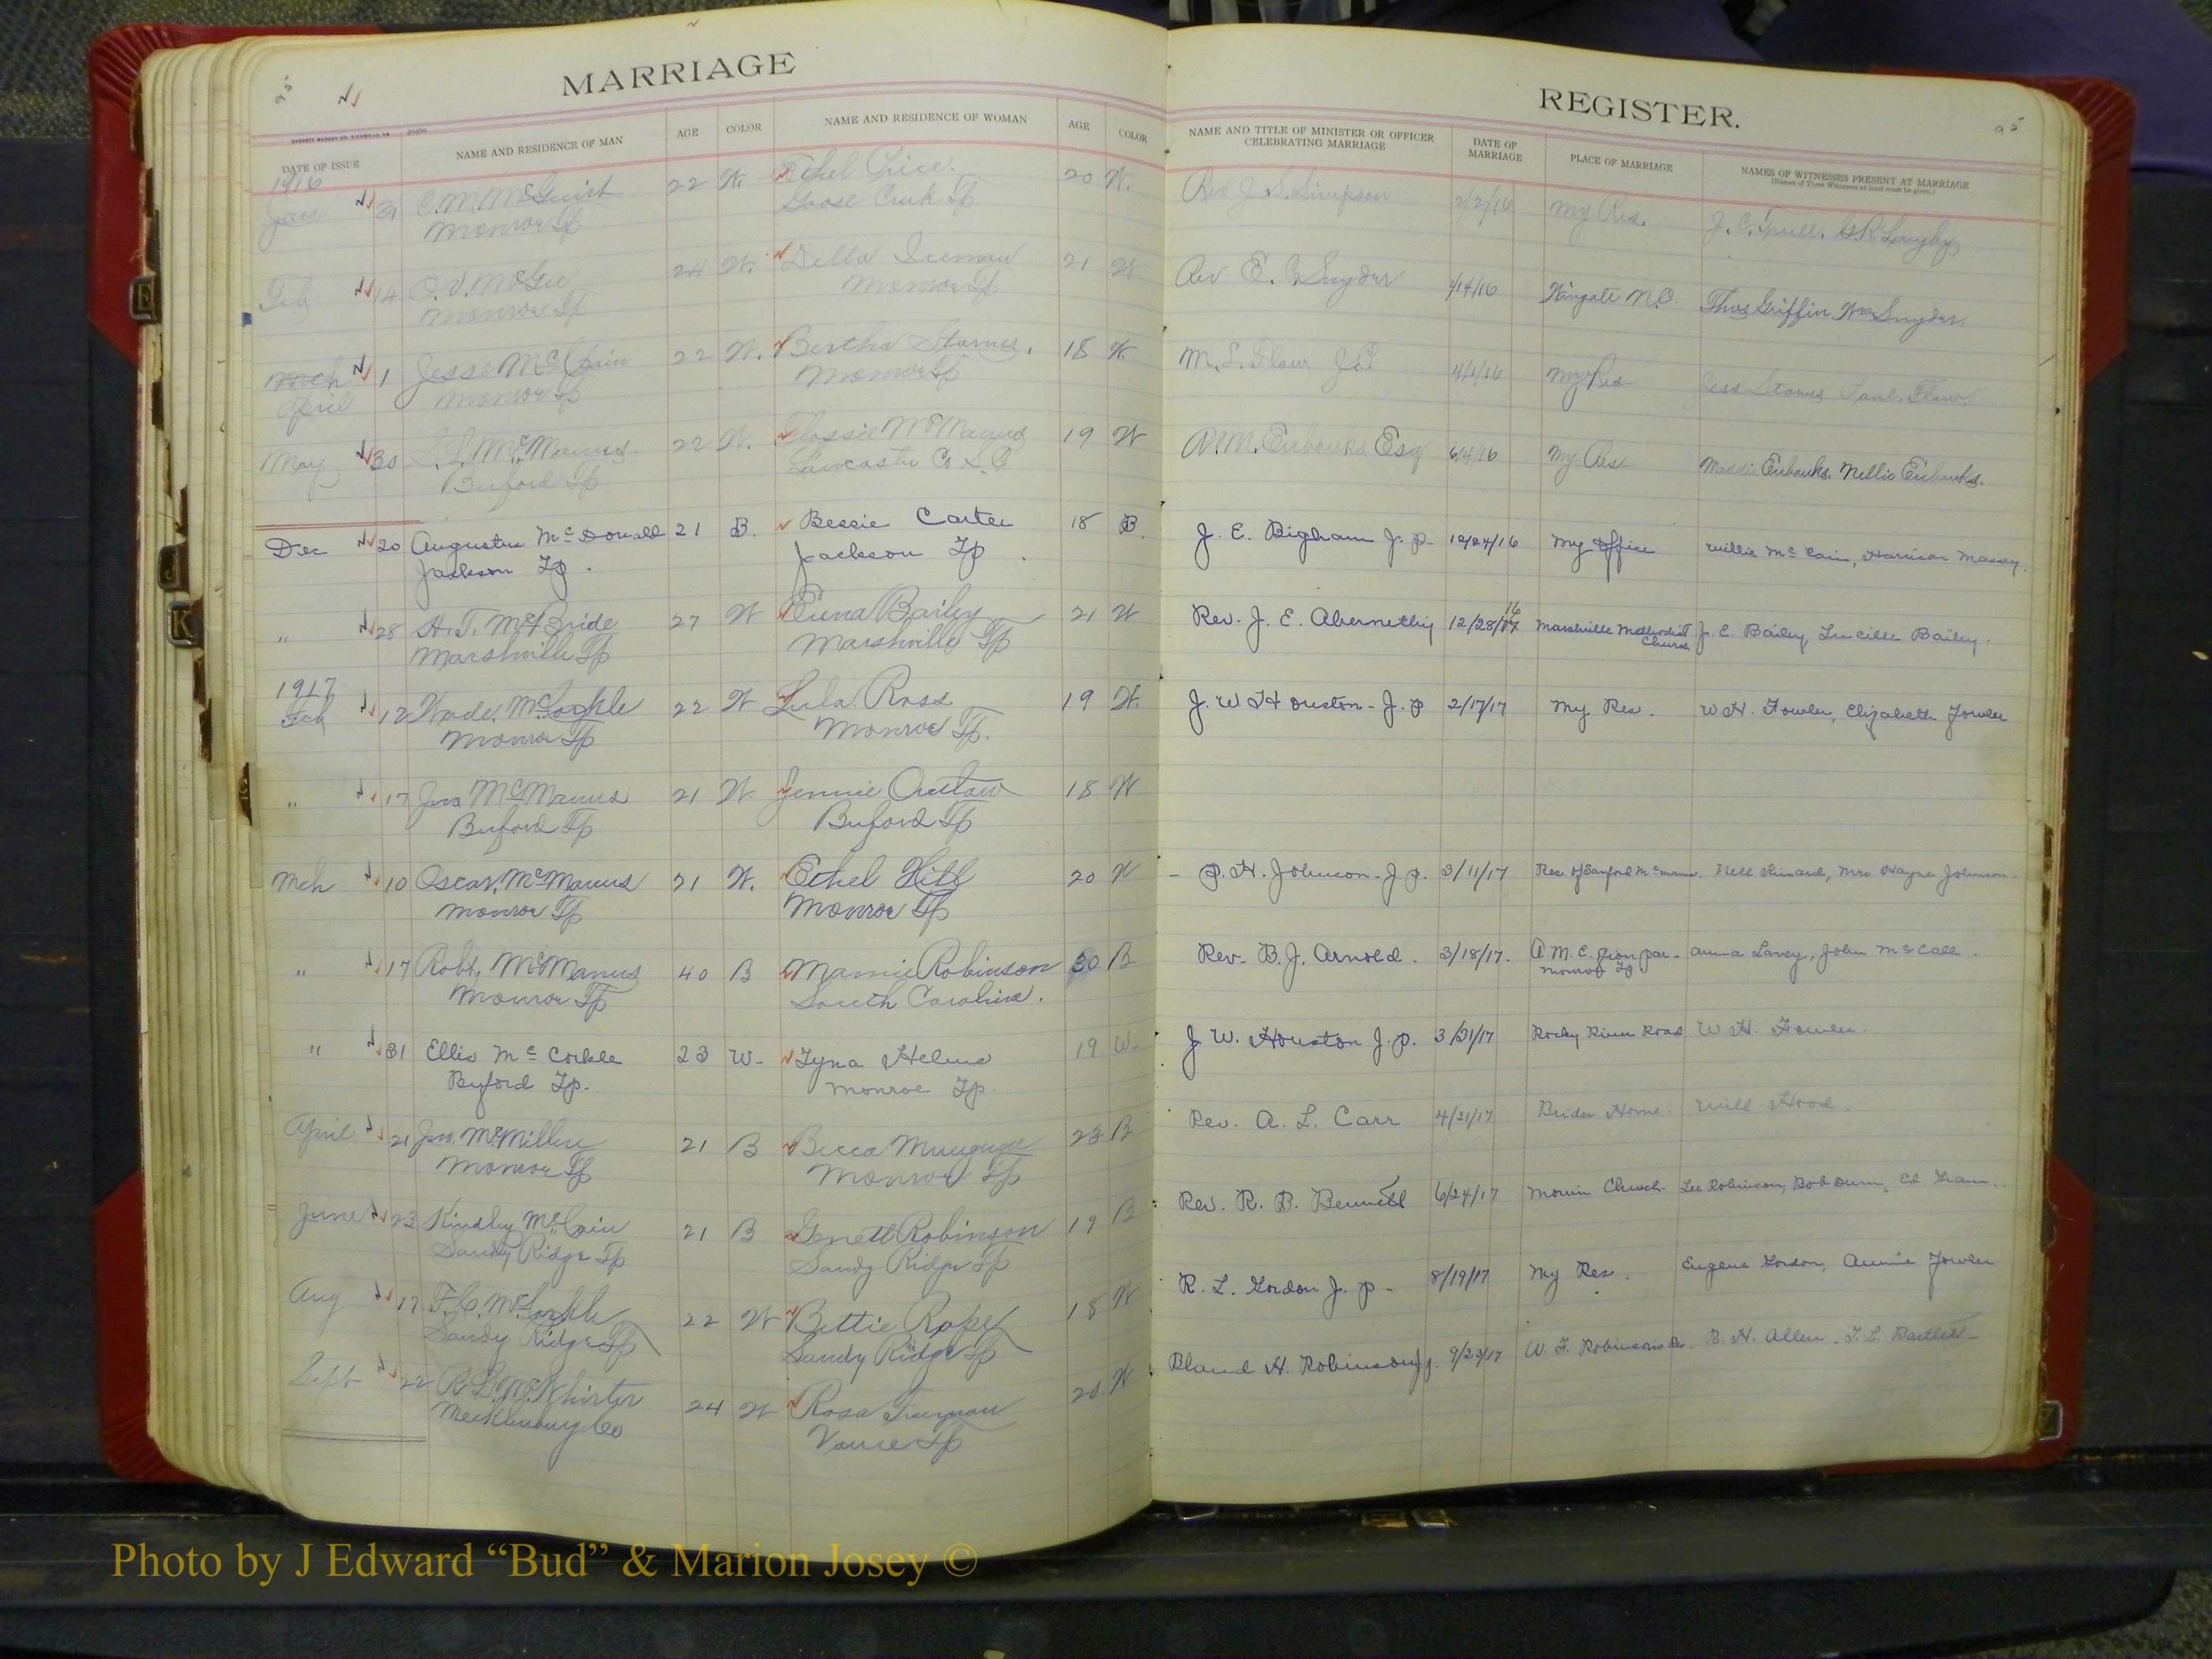 MARRIAGE
REGISTER.
95
95
DATE OF ISSUE
NAME AND RESIDENCE OF MAN
AGE
COLOR
NAME AND RESIDENCE OF WOMAN
AGE
COLOR
NAME AND TITLE OF MINISTER OR OFFICER
CELEBRATING MARRIAGE
DATE OF
MARRIAGE
PLACE OF MARRIAGE
NAMES OF WITNESSES PRESENT AT MARRIAGE
(Names of Three Witnesses at least must be given.)
1916
Jan 31 C. M. McGuirt 22 W. Ethel Price. 20 W. Rev J. S. Simpson 2/2/16 My Res.
Monroe Tp Goose Creek Tp
Feb 14 McGee 24 W. Della 21 W Rev E. C. Snyder /14/16 Wingate N.C. Thos Griffin, Wm Snyder.
Monroe Tp Monroe Tp
Mch 1 Jesse McCain 22 W. Bertha Starnes. 18 W. M. L. Flow J.P 4/1/16 My Res Jess Starnes Flow.
April Monroe Tp Monroe Tp
May 30 McManus 22 W. Flossie McManus 19 W A. M. Eubanks Esq 6/4/16 My Res Maddie Eubanks. Nellie Eubanks.
Buford Tp Lancaster Co S.C
Dec 20 Augustus McDonald 21 B. Bessie Carter 18 B. J. E. Bigham J. P. 12/24/16 My office Willie McCain, Harrison Massey.
Jackson Tp. Jackson Tp.
" 28 H. T. McBride 27 W Bailey 21 W Rev. J. E. Abernethy 12/28/16 Marshville Methodist Church J. E. Bailey, Lucille Bailey.
Marshville Tp Marshville Tp
1917
Feb 12 Wade McCorkle 22 W Lula Ross 19 W. J. W. Houston - J. P 2/17/17 My Res. W. H. Fowler, Elizabeth Fowler
Monroe Tp Monroe Tp.
" 17 Jno McManus 21 W. Jennie Outlaw 18 W
Buford Tp Buford Tp
Mch 10 Oscar McManus 21 W. Ethel Hill 20 W - P. H. Johnson - J. P. 3/11/17 Res of Sanford McManus. Nell Kinard, Mrs Wayne Johnson
Monroe Tp Monroe Tp
" 17 Robt. McManus 40 B Mamie Robinson 30 B Rev. B. J. Arnold. 3/18/17. A M. E. Zion par- Anna John McCall.
Monroe Tp South Carolina. Monroe Tp
" 31 Ellis McCorkle 23 W- Tyna Helms 19 W- J. W. Houston J. P. 3/31/17 Rocky River Road W. H. Fowler.
Buford Tp. Monroe Tp.
April 21 Jno. McMillan 21 B Becca 23 B Rev. A. L. Carr 4/21/17 Brides Home. Will Hood.
Monroe Tp Monroe Tp
June 23 Kindley McCain 21 B Robinson 19 B Rev. R. B. Bennett 6/24/17 Church Lee Robinson, Bob Dunn, Ed
Sandy Ridge Tp Sandy Ridge Tp
Aug 17 F. C. McCorkle 22 W Bettie Rape 18 W R. L. Gordon J. P - 8/19/17 My Res. Eugene Gordon, Annie Fowler
Sandy Ridge Tp Sandy Ridge Tp
Sept 22 R. L. McWhirter 24 W Rosa 20 W Bland H. Robinson 9/23/17 W. F. Robinsons Res. B. H. Allen - T. L. Bartlett-
Mecklenburg Co Vance Tp
E
J
K
Photo by J Edward “Bud” & Marion Josey ©